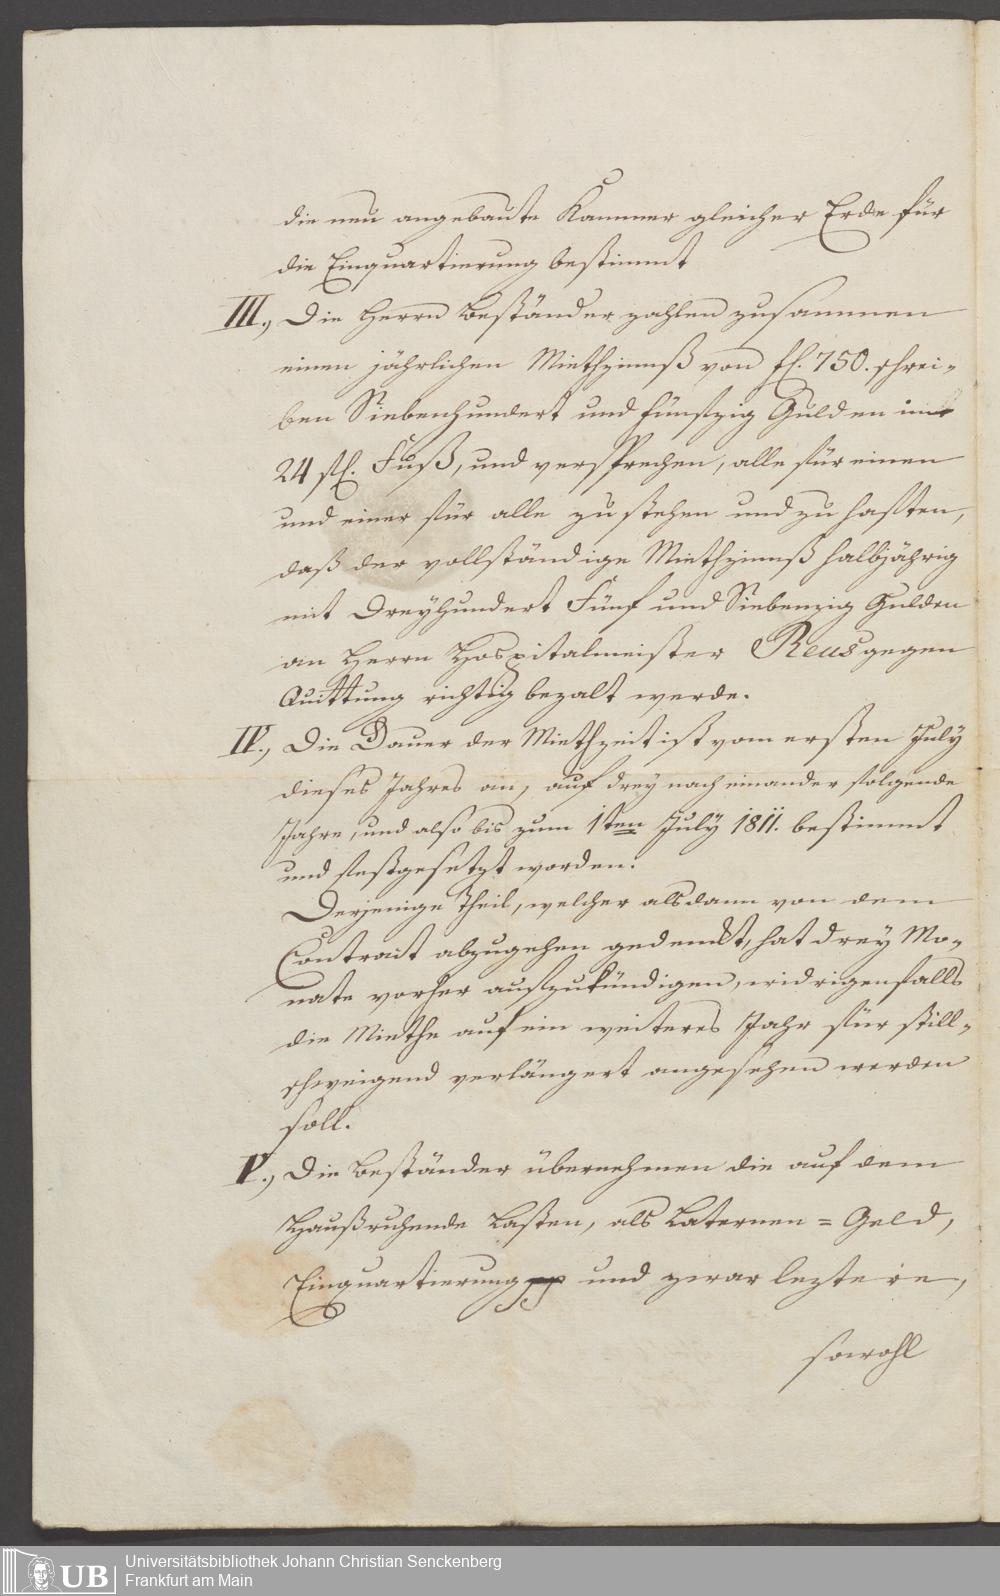 die neu angebaute Kammer gleicher Erde für
die Einquartierung bestimmt
III., Die Herrn Beständer zahlen zusammen
einen jährlichen Miethzinnß von fl. 750. schrei-
ben Siebenhundert und fünfzig Gulden im
24 fl. Fuß, und versprechen, alle für einen
und einer für alle zu stehen und zu haften,
daß der vollständige Miethzinnß halbjährig
mit Dreyhundert Fünf und Siebenzig Gulden
an Herrn Hospitalmeister Reus gegen
Quittung richtig bezalt werde.
IV., Die Dauer der Miethzeit ist vom ersten July
dieses Jahres an, auf drey nach einander folgende
Jahre, und also bis zum 1ten July 1811. bestimmt
und festgesetzt worden.
Derjenige Theil, welcher alsdann von dem
Contract abzugehen gedenckt, hat drey Mo-
nate vorher aufzukündigen, widrigenfalls
die Miethe auf ein weiteres Jahr für still-
schweigend verlängert angesehen werden
soll.
V., Die Beständer übernehmen die auf dem
Hauß ruhende Lasten, als Laternen = Geld,
Einquartierung pp und zwar leztere,
sowohl
UB
Universitätsbibliothek Johann Christian Senckenberg
Frankfurt am Main